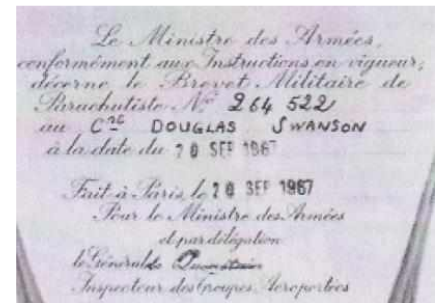 Le Ministre des Armées,
conformément aux Instructions en vigueur,
décerne le Brevet Militaire de
Parachutiste No 264 522
au Cne DOUGLAS SWANSON
à la date du 20 SEP 1967
Fait à Paris, le 20 SEP 1967
Pour le Ministre des Armées
et par délégation
le Général
Inspecteur des Troupes Aéroportées